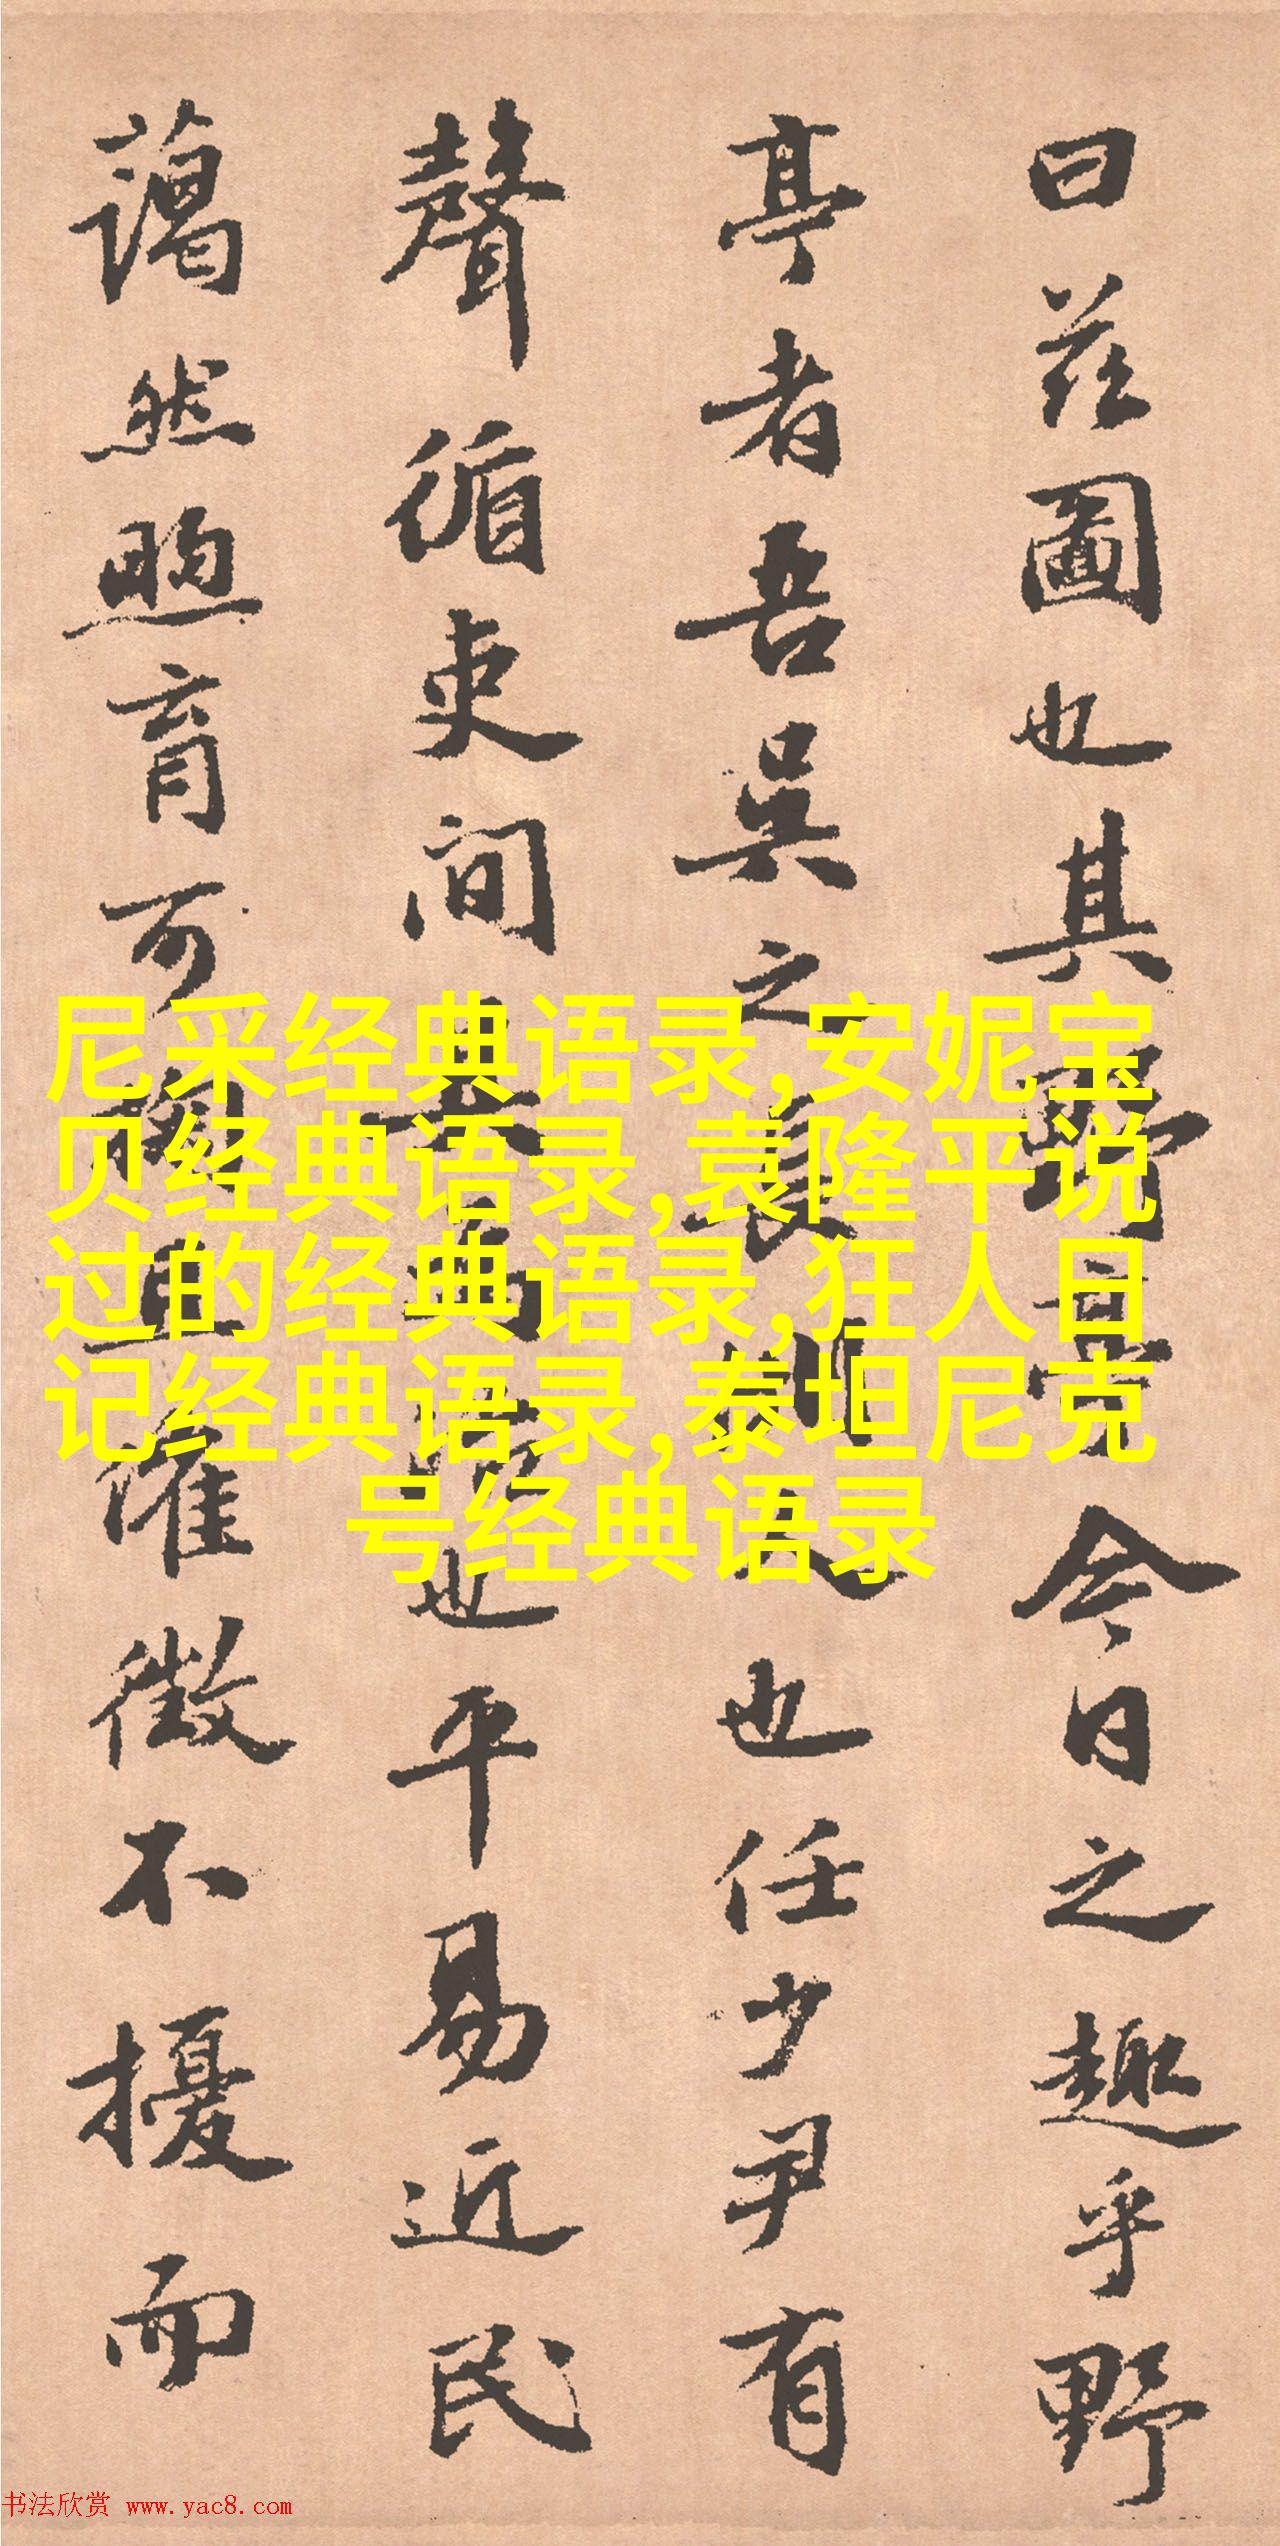 曰茲圖也其野景今日之趣乎野
亭者吾吳之良  人也任少尹有
聲循吏間其為  也平易近民
藹然煦育可  且催徵不擾而
尼采经典语录,安妮宝
贝经典语录,袁隆平说
过的经典语录,狂人日
记经典语录,泰坦尼克
号经典语录
书法欣赏 www.yac8.com